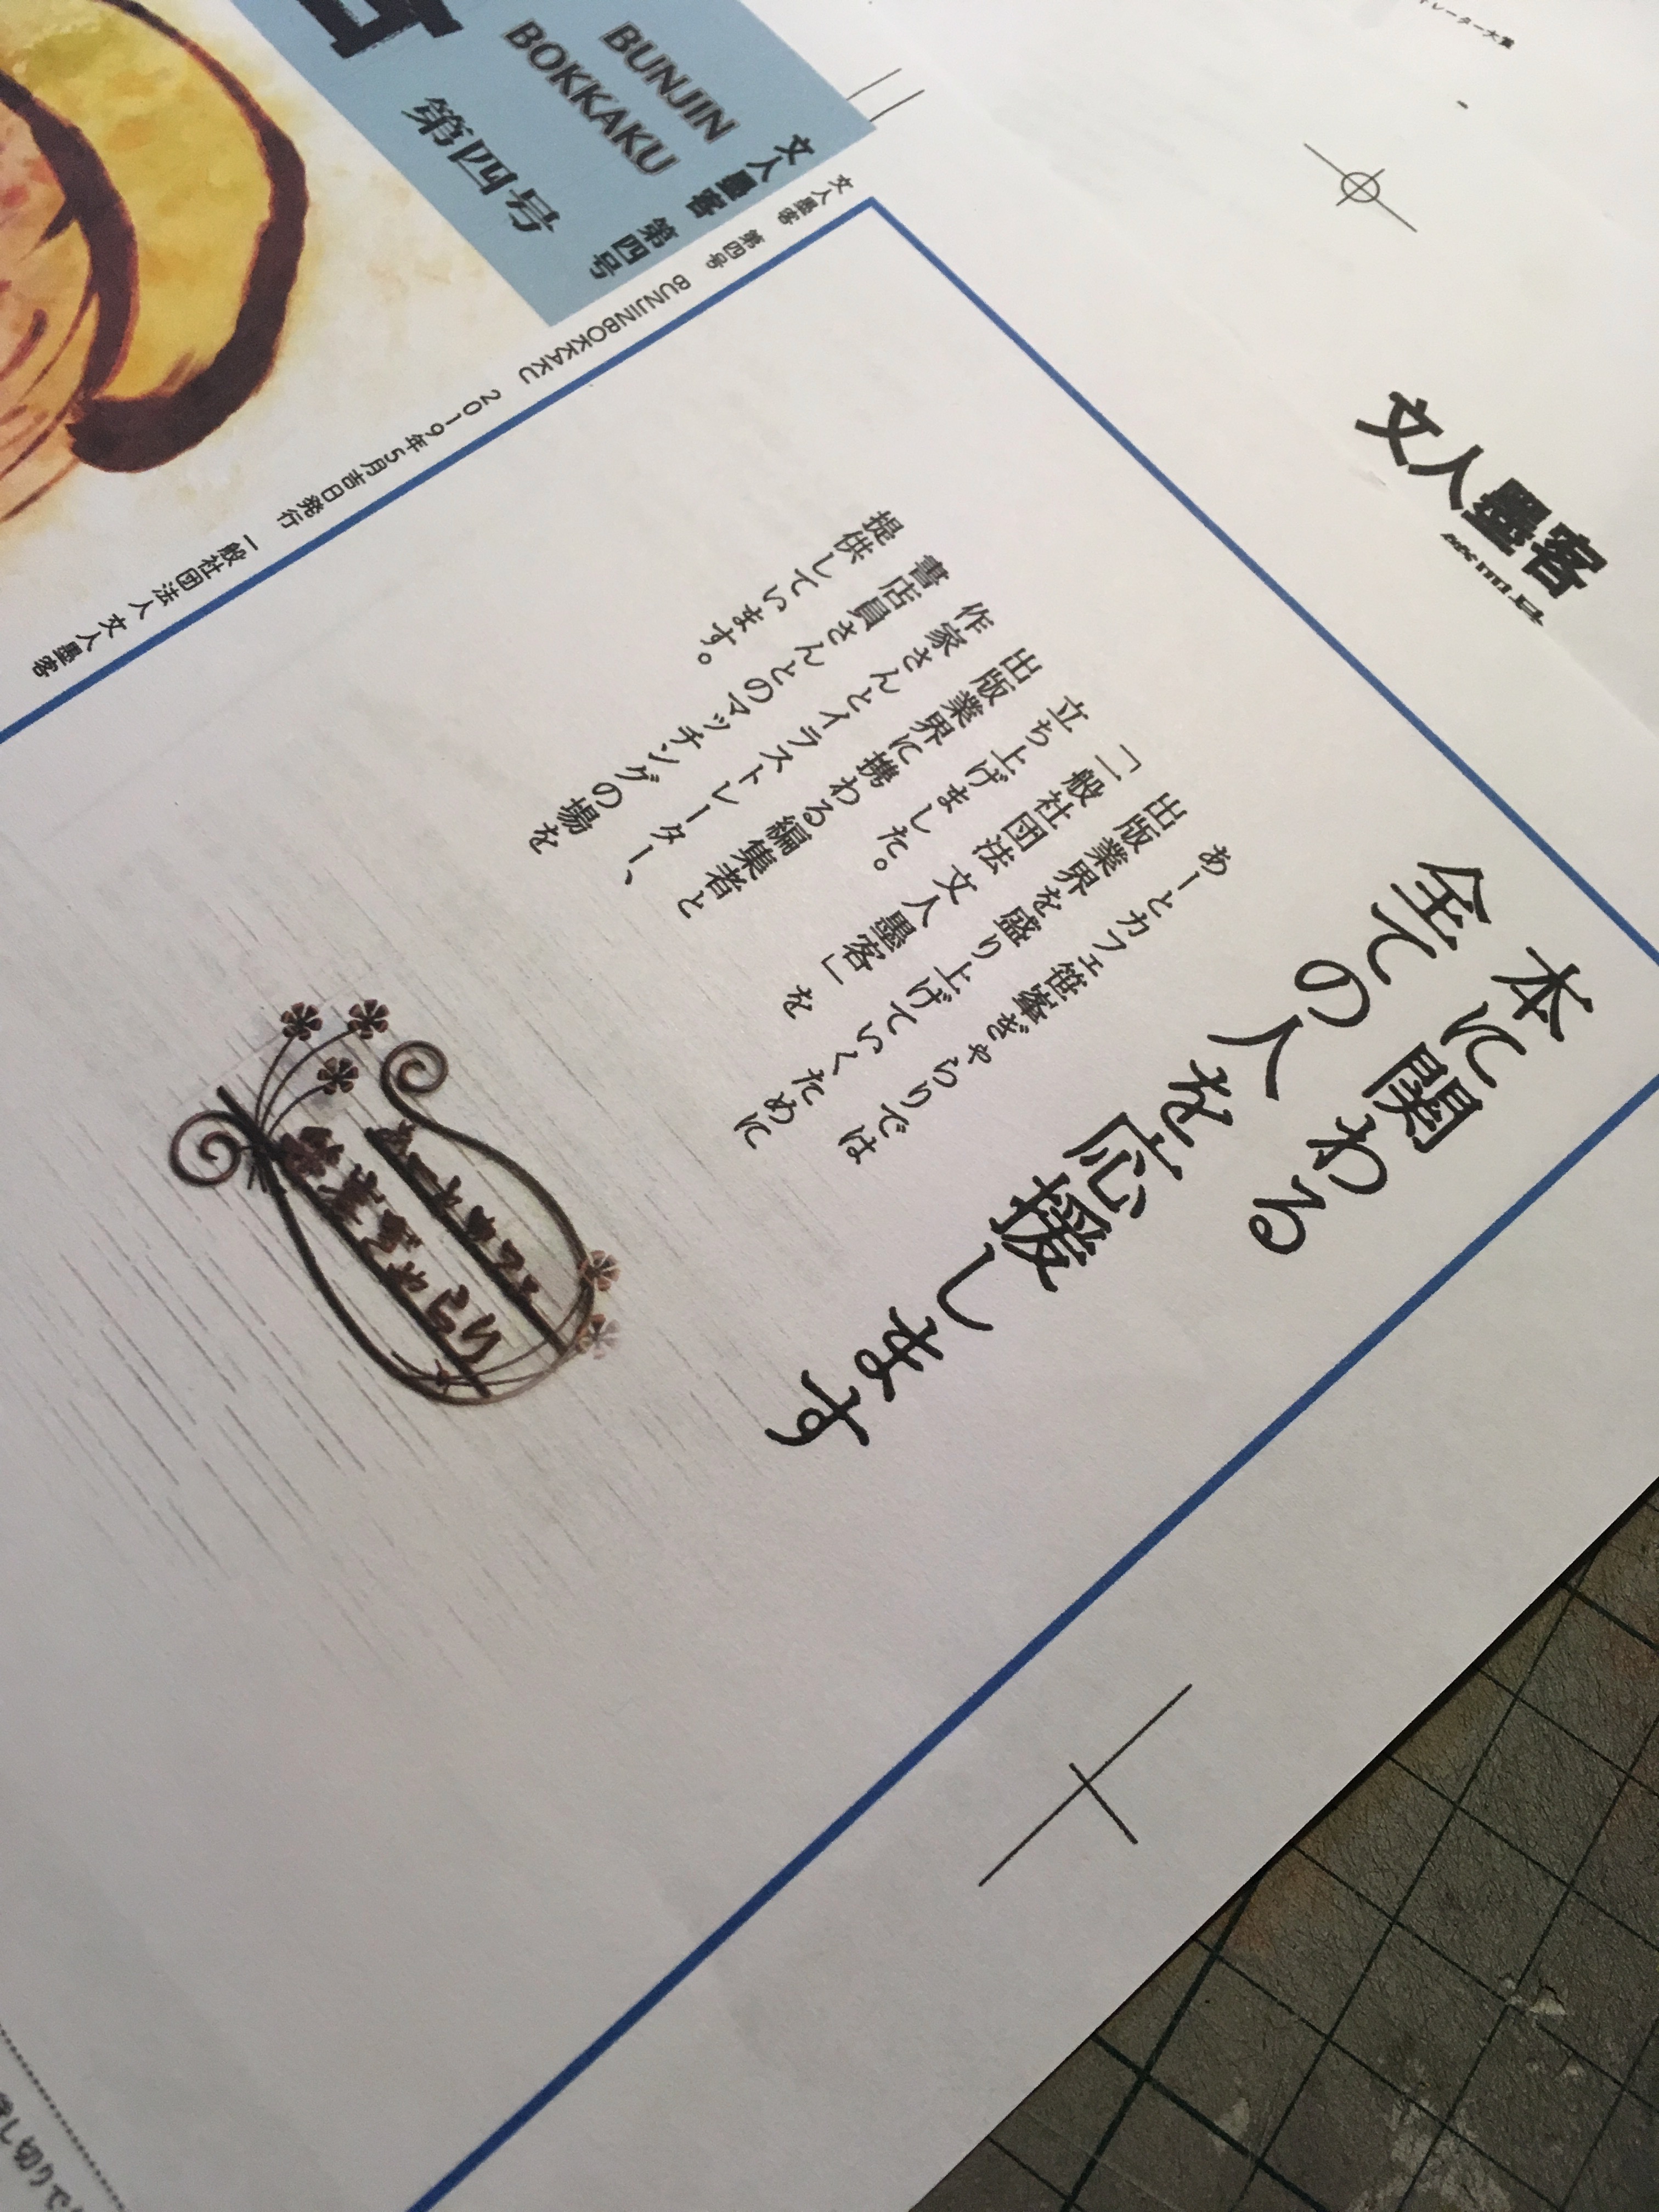 BUNJIN
BOKKAKU
第四号
文人墨客 第四号
文人墨客 第四号 BUNJINBOKKAKU 2019年5月吉日発行 一般社団法人 文人墨客
文人墨客
第四号
本に関わる
全ての人を応援します
あーとカフェ笹峯ぎゃらりでは
出版業界を盛り上げていくために
「一般社団法 文人墨客」を
立ち上げました。
出版業界に携わる編集者と
作家さんとイラストレーター、
書店員さんとのマッチングの場を
提供しています。
あーとカフェ
笹峯ぎゃらり